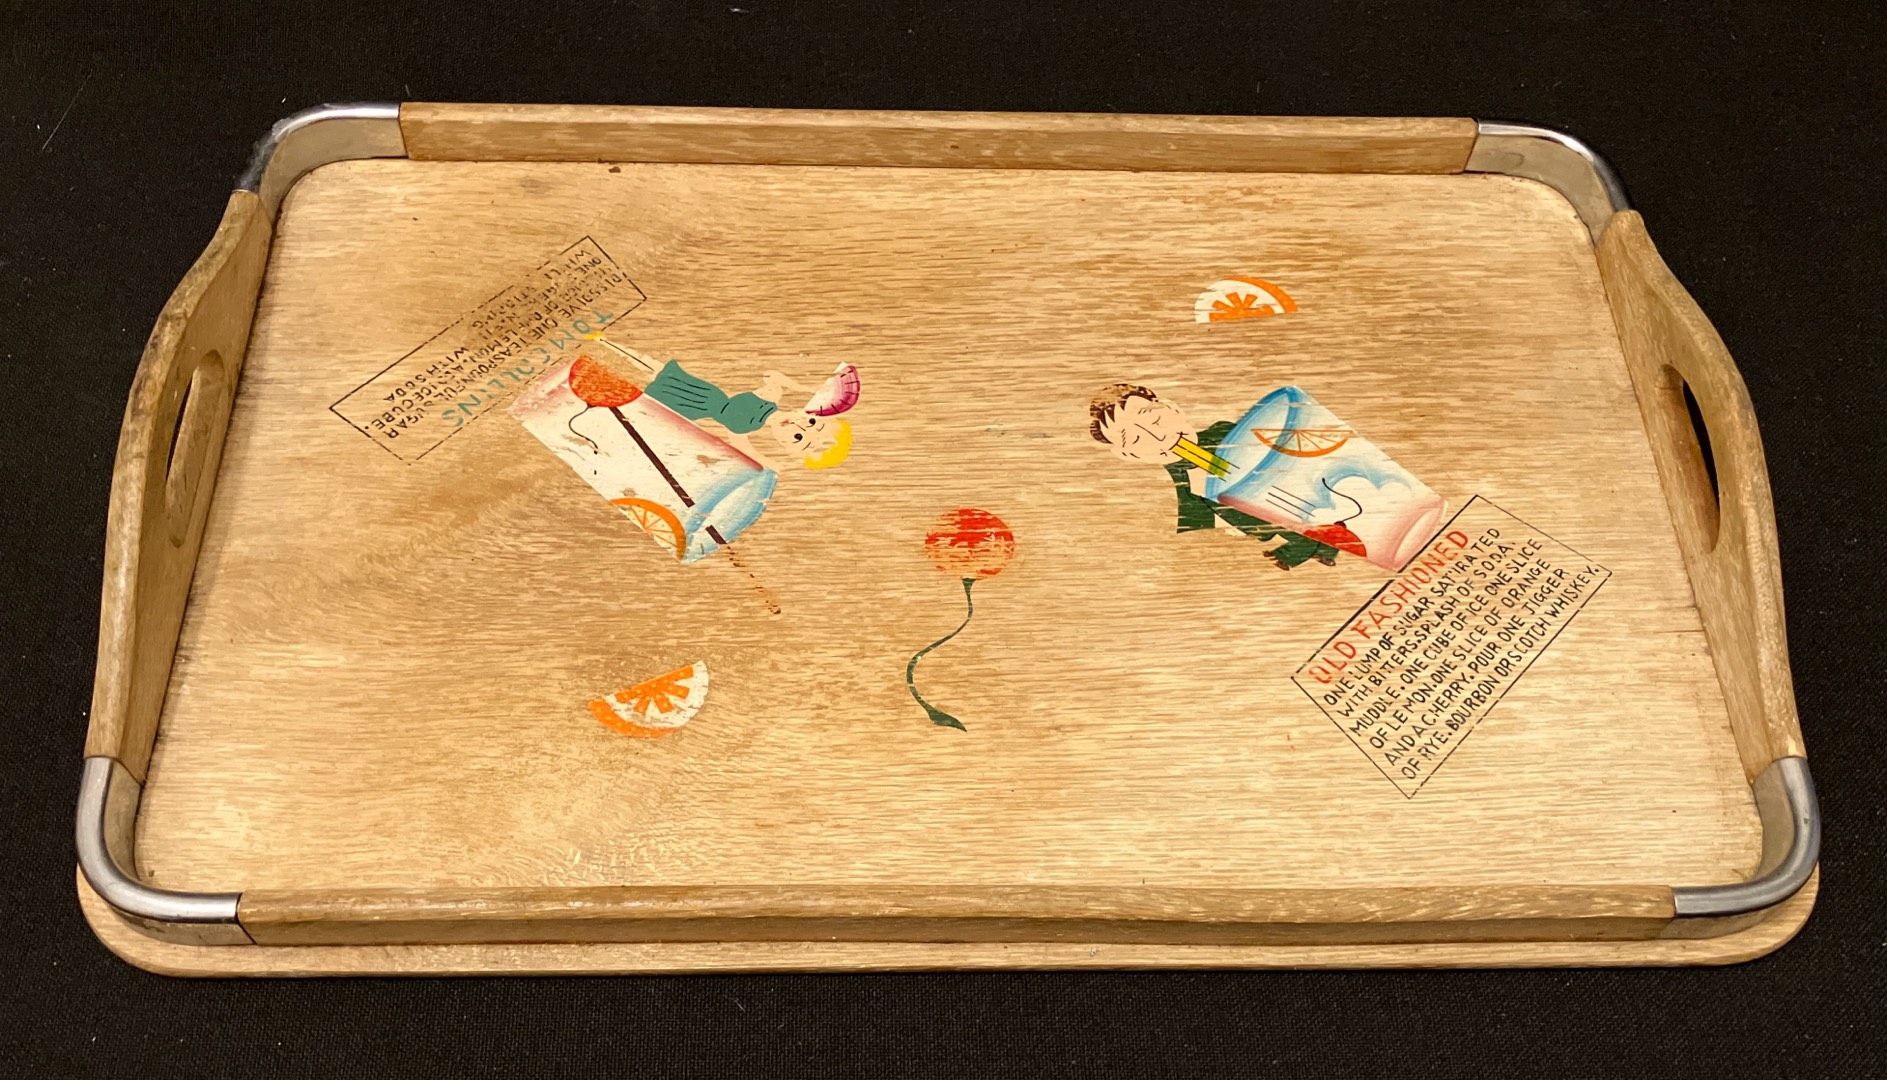 TOM COLLINS
DISSOLVE ONE TEASPOONFUL SUGAR
ONE LEMON. ICE CUBE.
WITH SODA
OLD FASHIONED
ONE LUMP OF SUGAR SATIRATED
WITH BITTERS.SPLASH OF SODA.
MUDDLE. ONE CUBE OF ICE ONE SLICE
OF LEMON.ONE SLICE OF ORANGE
AND A CHERRY. POUR ONE JIGGER
OF RYE. BOURBON OR SCOTCH WHISKEY.